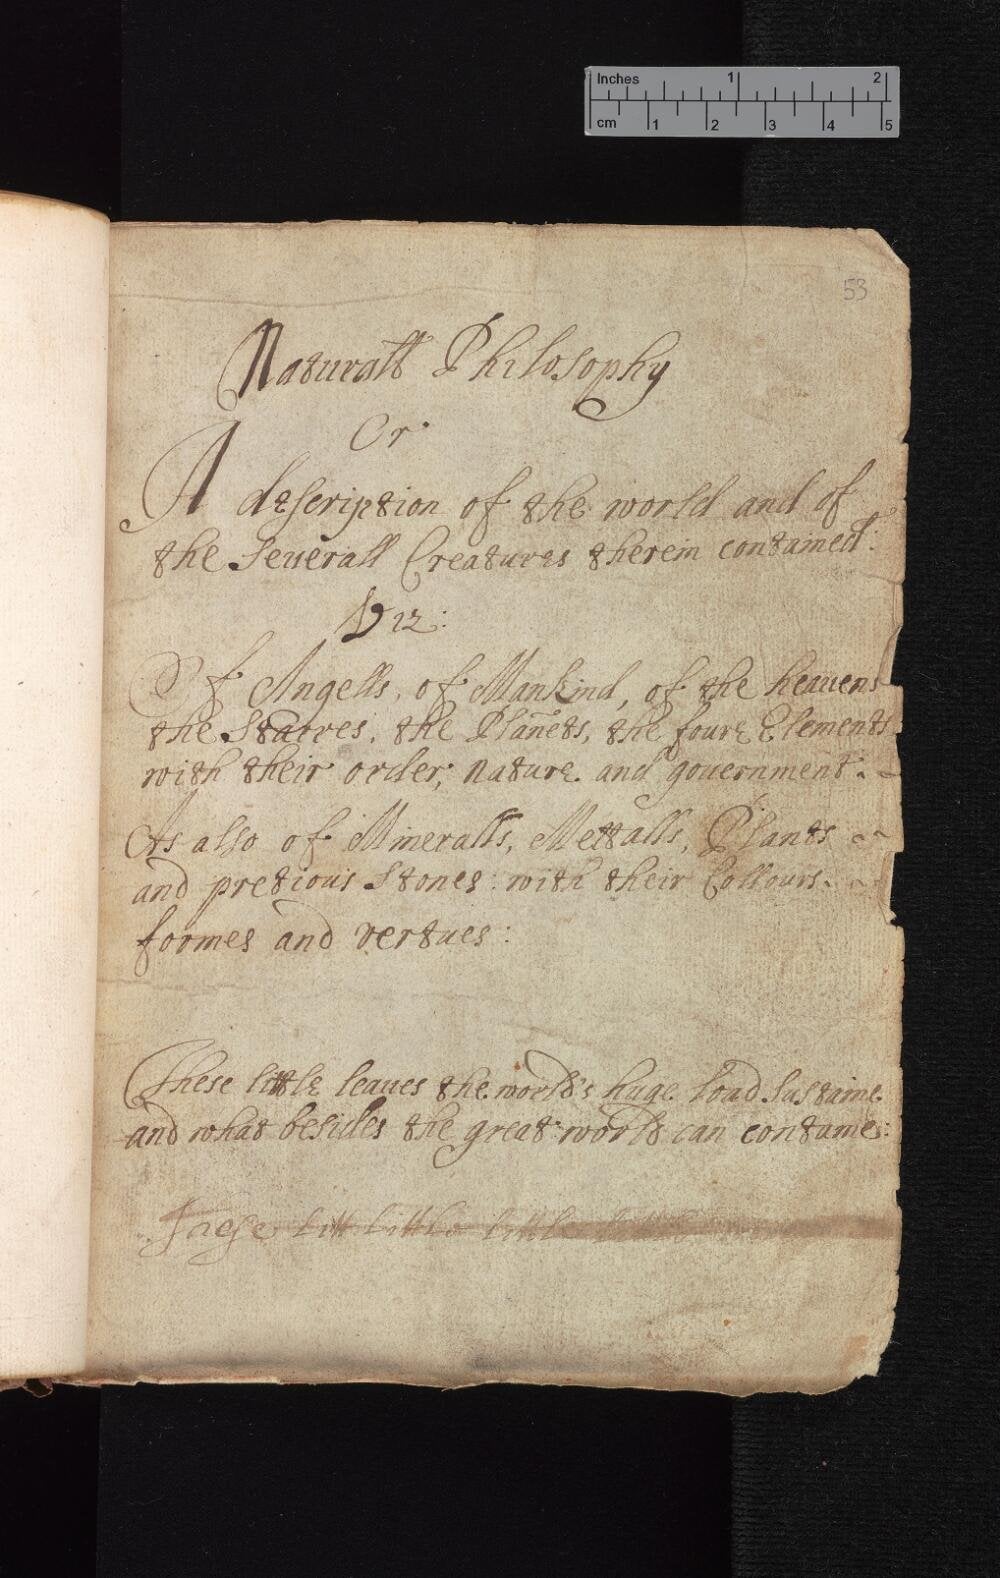 Inches 1 2
cm 1 2 3 4 5
53
Naturall Philosophy
Or
A description of the world and of
the Seuerall Creatures therein contained:
Viz:
Of Angells, of Mankind, of the heauens
the Starres, the Planets, the foure Elements
with their order, nature and gouernment.
As also of Mineralls, Mettalls, Plants
and pretious Stones: with their Collours.
formes and vertues:
These little leaues the world's huge load Sustaine
and what besides the great world can containe:
litt little little little